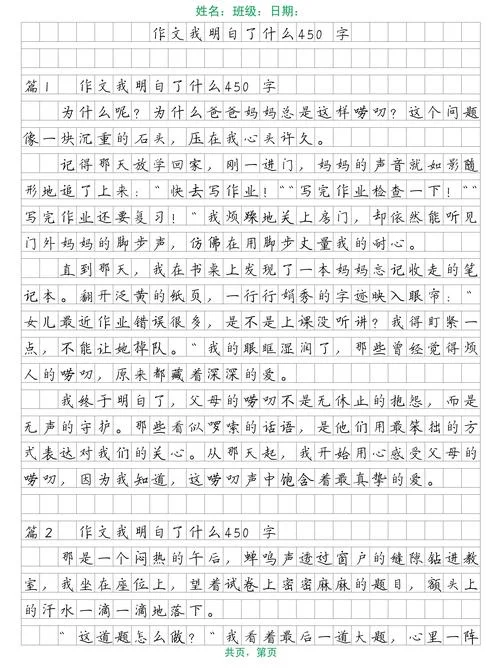 姓名：班级：日期：
作文我明白了什么450 字
篇1 作文我明白了什么450 字
为什么呢？为什么爸爸妈妈总是这样唠叨？这个问题
像一块沉重的石头，压在我心头许久。
记得那天放学回家，刚一进门，妈妈的声音就如影随
形地追了上来：“快去写作业！““写完作业检查一下！““
写完作业还要复习！“我烦躁地关上房门，却依然能听见
门外妈妈的脚步声，仿佛在用脚步丈量我的耐心。
直到那天，我在书桌上发现了一本妈妈忘记收走的笔
记本。翻开泛黄的纸页，一行行娟秀的字迹映入眼帘：“
女儿最近作业错误很多，是不是上课没听讲？我得盯紧一
点，不能让她掉队。“我的眼眶湿润了，那些曾经觉得烦
人的唠叨，原来都藏着深深的爱。
我终于明白了，父母的唠叨不是无休止的抱怨，而是
无声的守护。那些看似啰嗦的话语，是他们用最笨拙的方
式表达对我们的关心。从那天起，我开始用心感受父母的
唠叨，因为我知道，这唠叨声中饱含着最真挚的爱。
篇2 作文我明白了什么450 字
那是一个闷热的午后，蝉鸣声透过窗户的缝隙钻进教
室，我坐在座位上，望着试卷上密密麻麻的题目，额头上
的汗水一滴一滴地落下。
“这道题怎么做？“我看着最后一道大题，心里一阵
共页，第页